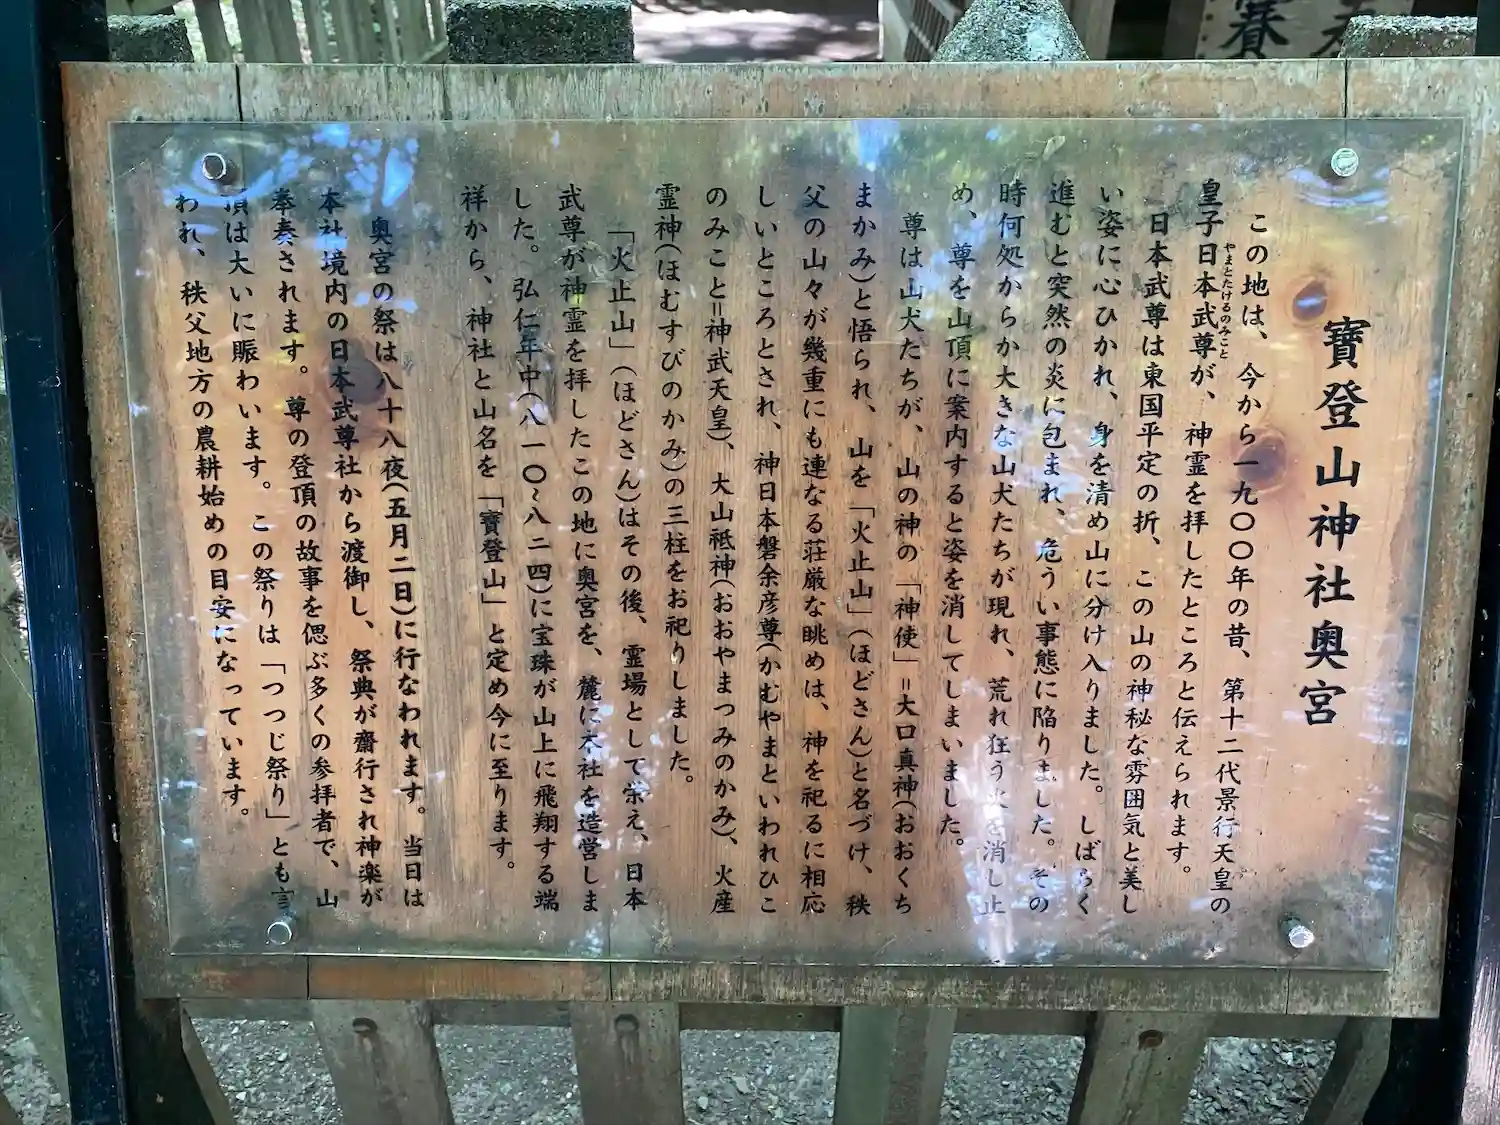 寶登山神社奥宮
この地は、今から一九〇〇年の昔、第十二代景行天皇の
皇子日本武尊が、神霊を拝したところと伝えられます。
やまとたけるのみこと
日本武尊は東国平定の折、この山の神秘な雰囲気と美し
い姿に心ひかれ、身を清め山に分け入りました。しばらく
進むと突然の炎に包まれ、危うい事態に陥りました。その
時何処からか大きな山犬たちが現れ、荒れ狂う火を消し止
め、尊を山頂に案内すると姿を消してしまいました。
尊は山犬たちが、山の神の「神使」=大口真神(おおくち
まかみ)と悟られ、山を「火止山」(ほどさん)と名づけ、秩
父の山々が幾重にも連なる荘厳な眺めは、神を祀るに相応
しいところとされ、神日本磐余彦尊(かむやまといわれひこ
のみこと=神武天皇)、大山祗神(おおやまつみのかみ)、火産
霊神(ほむすびのかみ)の三柱をお祀りしました。
「火止山」(ほどさん)はその後、霊場として栄え、日本
武尊が神霊を拝したこの地に奥宮を、麓に本社を造営しま
した。弘仁年中(八一〇~八二四)に宝珠が山上に飛翔する端
祥から、神社と山名を「寶登山」と定め今に至ります。
奥宮の祭は八十八夜(五月二日)に行なわれます。当日は
本社境内の日本武尊社から渡御し、祭典が齋行され神楽が
奉奏されます。尊の登頂の故事を偲ぶ多くの参拝者で、山
頂は大いに賑わいます。この祭りは「つつじ祭り」とも言
われ、秩父地方の農耕始めの目安になっています。